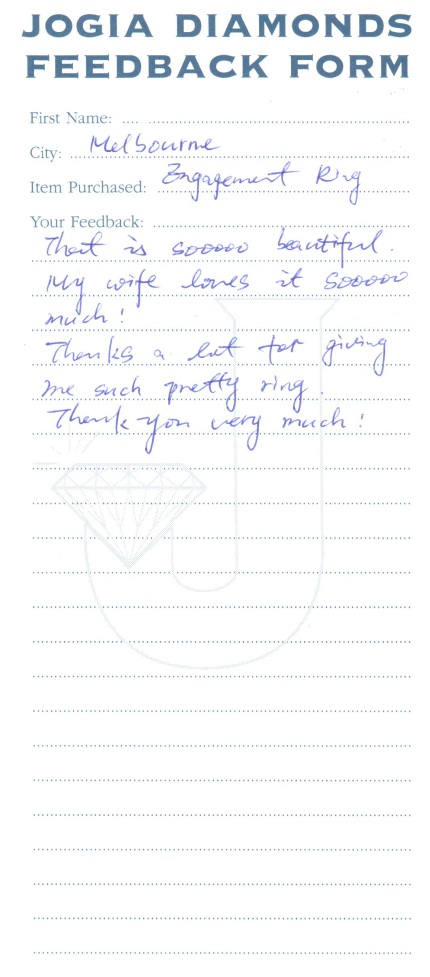 JOGIA DIAMONDS
FEEDBACK FORM
First Name:
City: Melbourne
Item Purchased: Engagement Ring
Your Feedback:
That is sooooo beautiful.
My wife loves it sooooo
much!
Thanks a lot for giving
me such pretty ring.
Thank you very much!